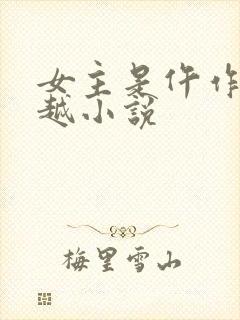 女主是仵作
越小説
梅里雪山